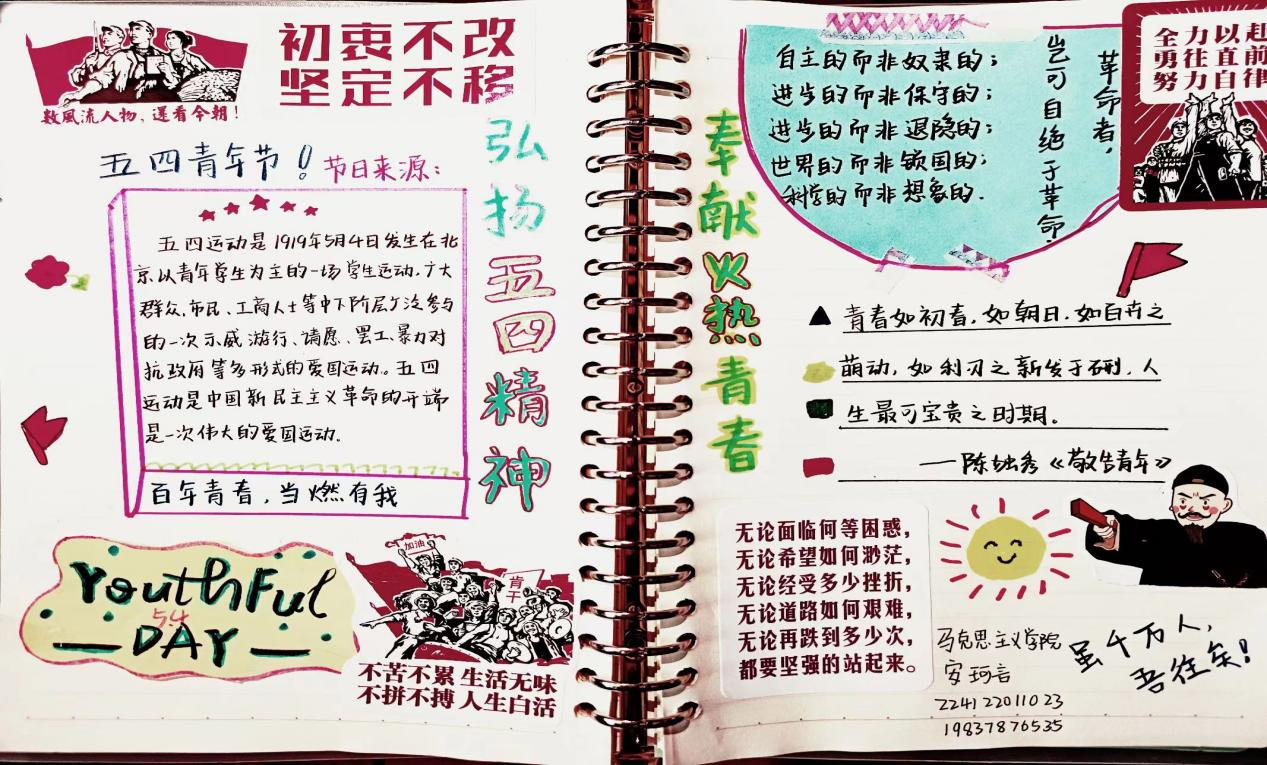 初衷不改
坚定不移
数風流人物，还看今朝！
五四青年节！节日来源：
五四运动是1919年5月4日发生在北
京以青年学生为主的一场学生运动，广大
群众、市民、工商人士等中下阶层广泛参与
的一次示威游行、请愿、罢工、暴力对
抗政府等多形式的爱国运动。五四
运动是中国新民主主义革命的开端
是一次伟大的爱国运动.
百年青春，当燃有我
弘扬五四精神
Youthful
54
DAY
加油
肯干
不苦不累 生活无味
不拼不搏 人生白活
奉献火热青春
自主的而非奴隶的；
进步的而非保守的；
进步的而非退隐的；
世界的而非锁国的；
科学的而非想象的.
革命者，
岂可自绝于革命.
全力以赴
勇往直前
努力自律
青春如初春，如朝日，如百卉之
萌动，如利刃之新发于硎，人
生最可宝贵之时期。
——陈独秀《敬告青年》
无论面临何等困惑，
无论希望如何渺茫，
无论经受多少挫折，
无论道路如何艰难，
无论再跌到多少次，
都要坚强的站起来。
马克思主义学院
安珂言
224122011023
19837876535
虽千万人，
吾往矣！